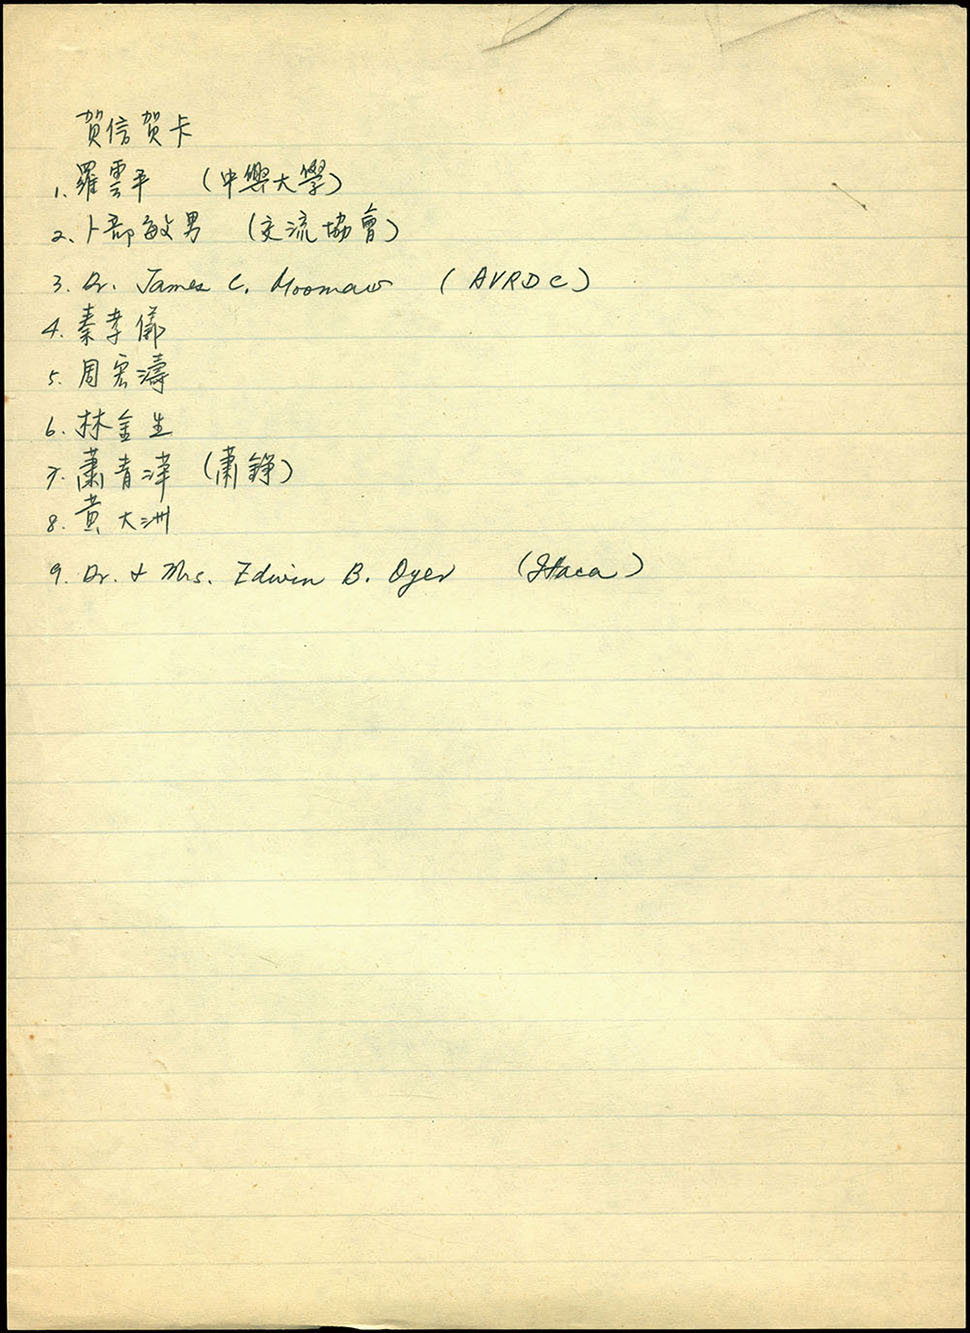 賀信賀卡
1. 羅雲平 (中興大學)
2. 卜部敏男 (交流協會)
3. Dr. James C. Moomaw (AVRDC)
4. 秦孝儀
5. 周宏濤
6. 林金生
7. 蕭青漳 (蕭錚)
8. 黃大洲
9. Dr. & Mrs. Edwin B. Oyer (Itaca)